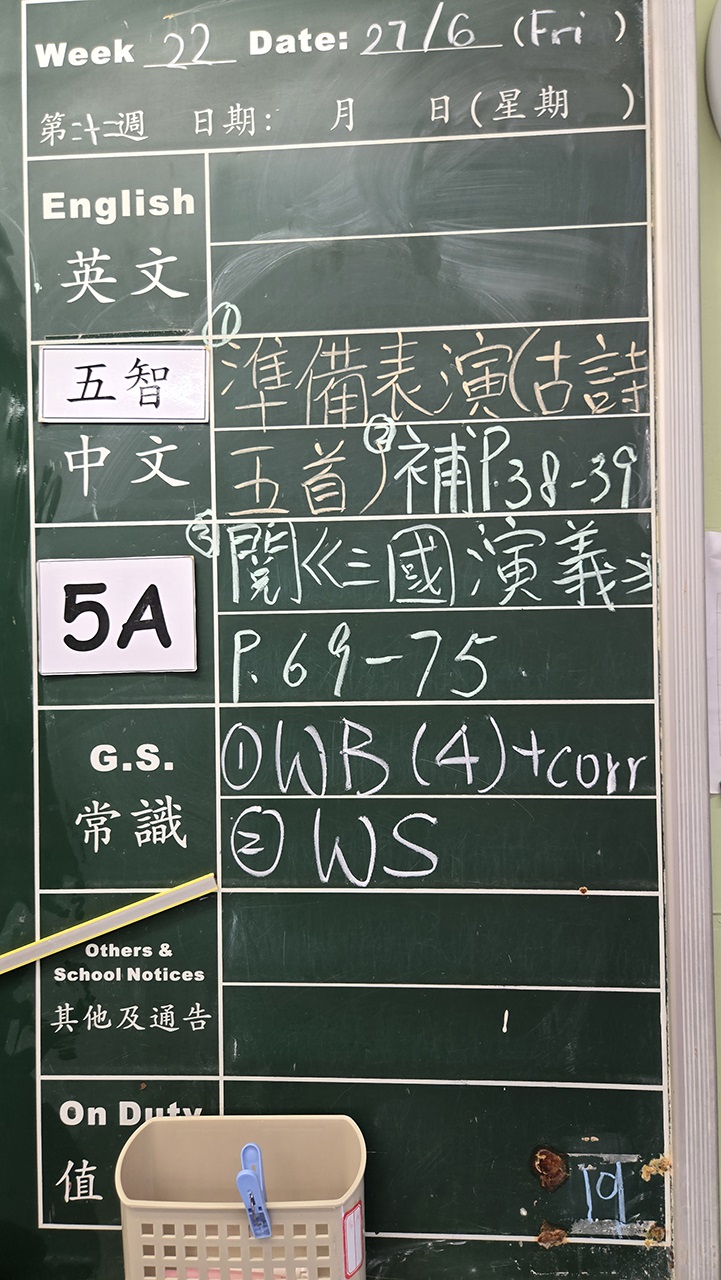 Week 22 Date: 27/6 (Fri)
第二十二週 日期: 月 日(星期 )
English
英文
五智
中文
① 準備表演(古詩
五首) ② 補P.38-39
5A
③ 閱《三國演義》
P.69-75
G.S.
常識
① WB (4)+corr
② WS
Others &
School Notices
其他及通告
On Duty
值
19